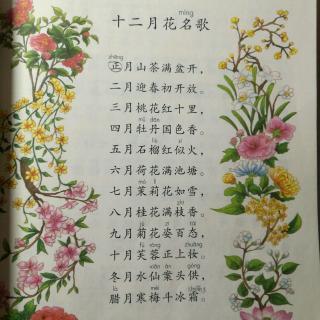 十二月花名歌
正月山茶满盆开，
二月迎春初开放。
三月桃花红十里，
四月牡丹国色香。
五月石榴红似火，
六月荷花满池塘。
七月茉莉花如雪，
八月桂花满枝香。
九月菊花姿百态，
十月芙蓉正上妆。
冬月水仙案头供，
腊月寒梅斗冰霜。